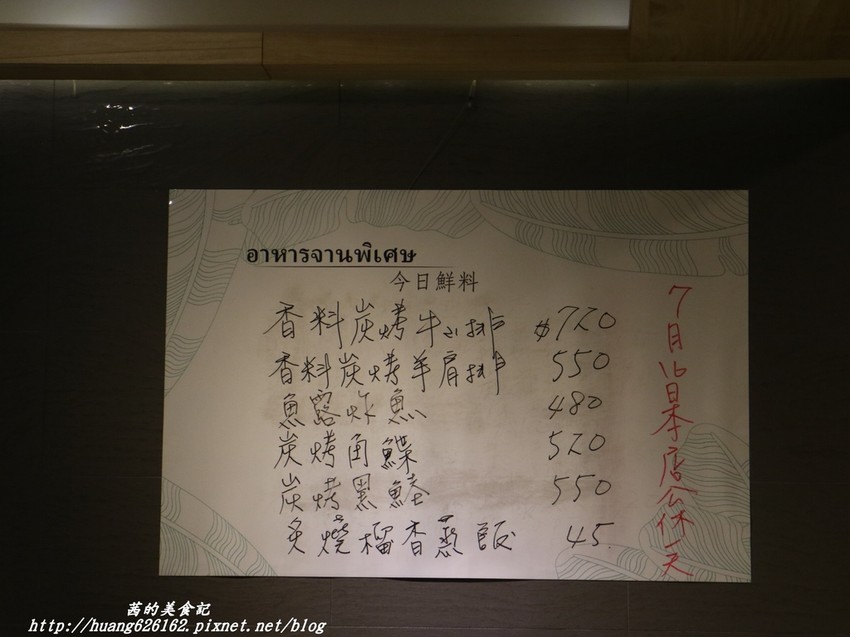 อาหารจานพิเศษ
今日鮮料
香料炭烤牛小排 $720
香料炭烤羊肩排 550
魚露炸魚 480
炭烤角鰈 520
炭烤黑鯥 550
炙燒榴香蒸飯 45.
7月16日本店公休一天
茜的美食記
http://huang626162.pixnet.net/blog